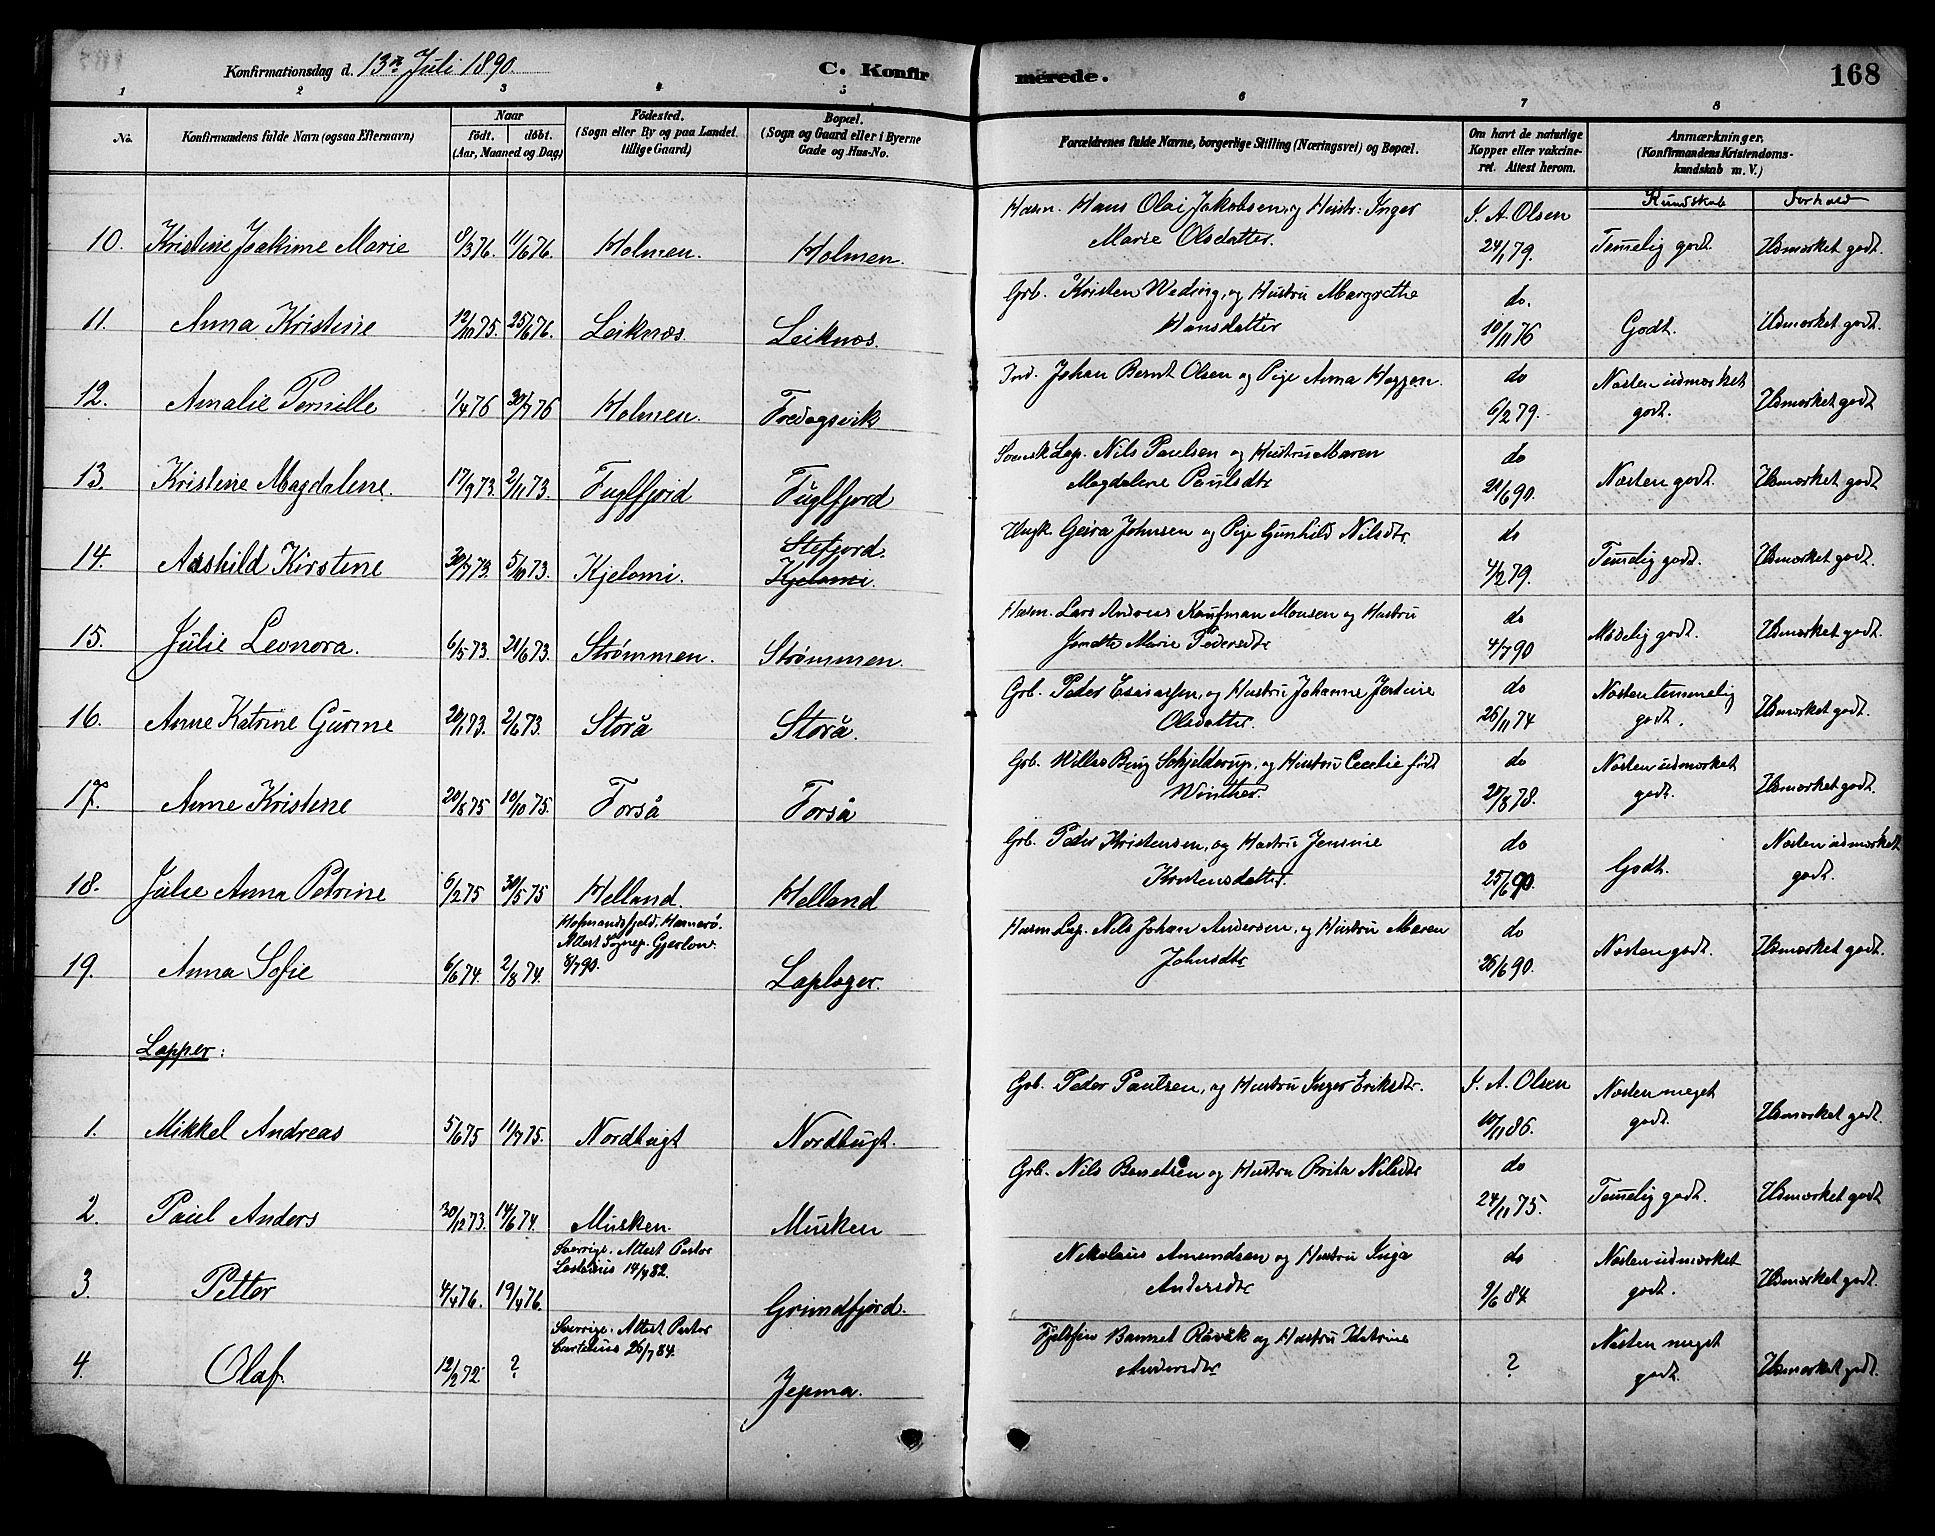 Konfirmationsdag d. 13de Juli 1890. C. Konfirmerede. 168
1 2 3 4 5 6 7 8
No. Konfirmandens fulde Navn (ogsaa Efternavn) Naar født. døbt. (Aar, Maaned og Dag) Fødested. (Sogn eller By og paa Landet tillige Gaard) Bopæl. (Sogn og Gaard eller i Byerne Gade og Hus-No. Forældrenes fulde Navne, borgerlige Stilling (Næringsvei) og Bopæl. Om havt de naturlige Kopper eller vakcineret. Attest herom. Anmærkninger. (Konfirmandens Kristendomskundskab m. V.)
Kundskab Forhold
10. Kristine Joakime Marie 9/3 76. 11/6 76. Holmen. Holmen. Husm. Hans Olai Jakobsen, og Hustr: Inger Marie Olsdatter. I. A. Olsen 24/1 79. Temelig godt. Udmærket godt.
11. Anna Kristine 12/10 75. 25/6 76. Leiknes. Leiknes. Grb. Kristen Weding, og Hustru Margrethe Hansdatter do. 10/11 76 Godt. Udmærket godt.
12. Amalie Pernille 1/4 76 30/7 76 Holmen. Fredagsvik Ind. Johan Bernt Olsen og Pige Anna do 6/2 79. Næsten udmærket godt. Udmærket godt
13. Kristine Magdalene. 17/9 73. 2/11 73. Fuglfjord Fuglfjord Svensk Lap. Nils Paulsen og Hustru Maren Magdalene Paulsdtr do 21/6 90. Næsten godt. Udmærket godt
14. Aashild Kirstine 30/7 73. 5/10 73. Kjelomi. Stefjord. Kjelomi. Ungk. Geira Johnsen og Pige Gunhild Nilsdtr do 4/2 79. Temelig godt. Udmærket godt.
15. Julie Leonora. 6/5 73. 21/6 73. Strømmen. Strømmen. Husm. Lars Andreas Kaufman Monsen og Hustru Marie Pedersdtr do 4/7 90 Mådelig godt. Udmærket godt.
16. Anne Katrine Gurine 20/1 73. 2/6 73. Storå Storå. Grb. Peder Esaiassen, og Hustru Johanne Olsdatter do 26/11 74 Næsten temmelig godt. Udmærket godt.
17. Anne Kristine 20/8 75 10/10 75. Forså Forså Grb. Schjelderup, og Hustru Cecilie født Winther. do 27/8 78. Næsten udmærket godt. Udmærket godt.
18. Julie Anna Petrine 6/2 75 30/5 75 Helland. Helland Grb. Peder Kristensen, og Hustru Jensine Kristensdatter. do 25/6 90. Godt. Næsten udmærket godt.
19. Anna Sofie 6/6 74. 2/8 74. Hofmandsfjeld. Hamarø. Attest Sognep. Gjerlow. 8/7 90. Laplager. Husm Lap. Nils Johan Andersen, og Hustru Maren Johnsdtr do 26/6 90. Næsten godt. Udmærket godt.
Lapper:
1. Mikkel Andreas 5/6 75 11/7 75. Nordbugt Nordbugt. Grb. Peder Paulsen, og Hustru Inger Eriksdtr. I. A. Olsen 10/11 86. Næsten meget godt. Udmærket godt.
2. Paul Anders 30/12 73. 14/6 74. Musken. Musken Grb. Nils og Hustru Brita Nilsdtr do 24/11 75. Temelig godt. Udmærket godt
3. Petter 4/4 76. 19/4 76. Sverrige. Attest Pastor Læstadius 14/7 82. Grundfjord. Nikolaus Amundsen og Hustru Inga Andersdtr do 9/6 84 Næsten udmærket godt. Udmærket godt.
4. Olaf. 12/2 72. ? Sverrige. Attest Pastor 26/7 84. Jepma. Bannet og Hustru Katrine Andersdtr ? Næsten meget godt. Udmærket godt.